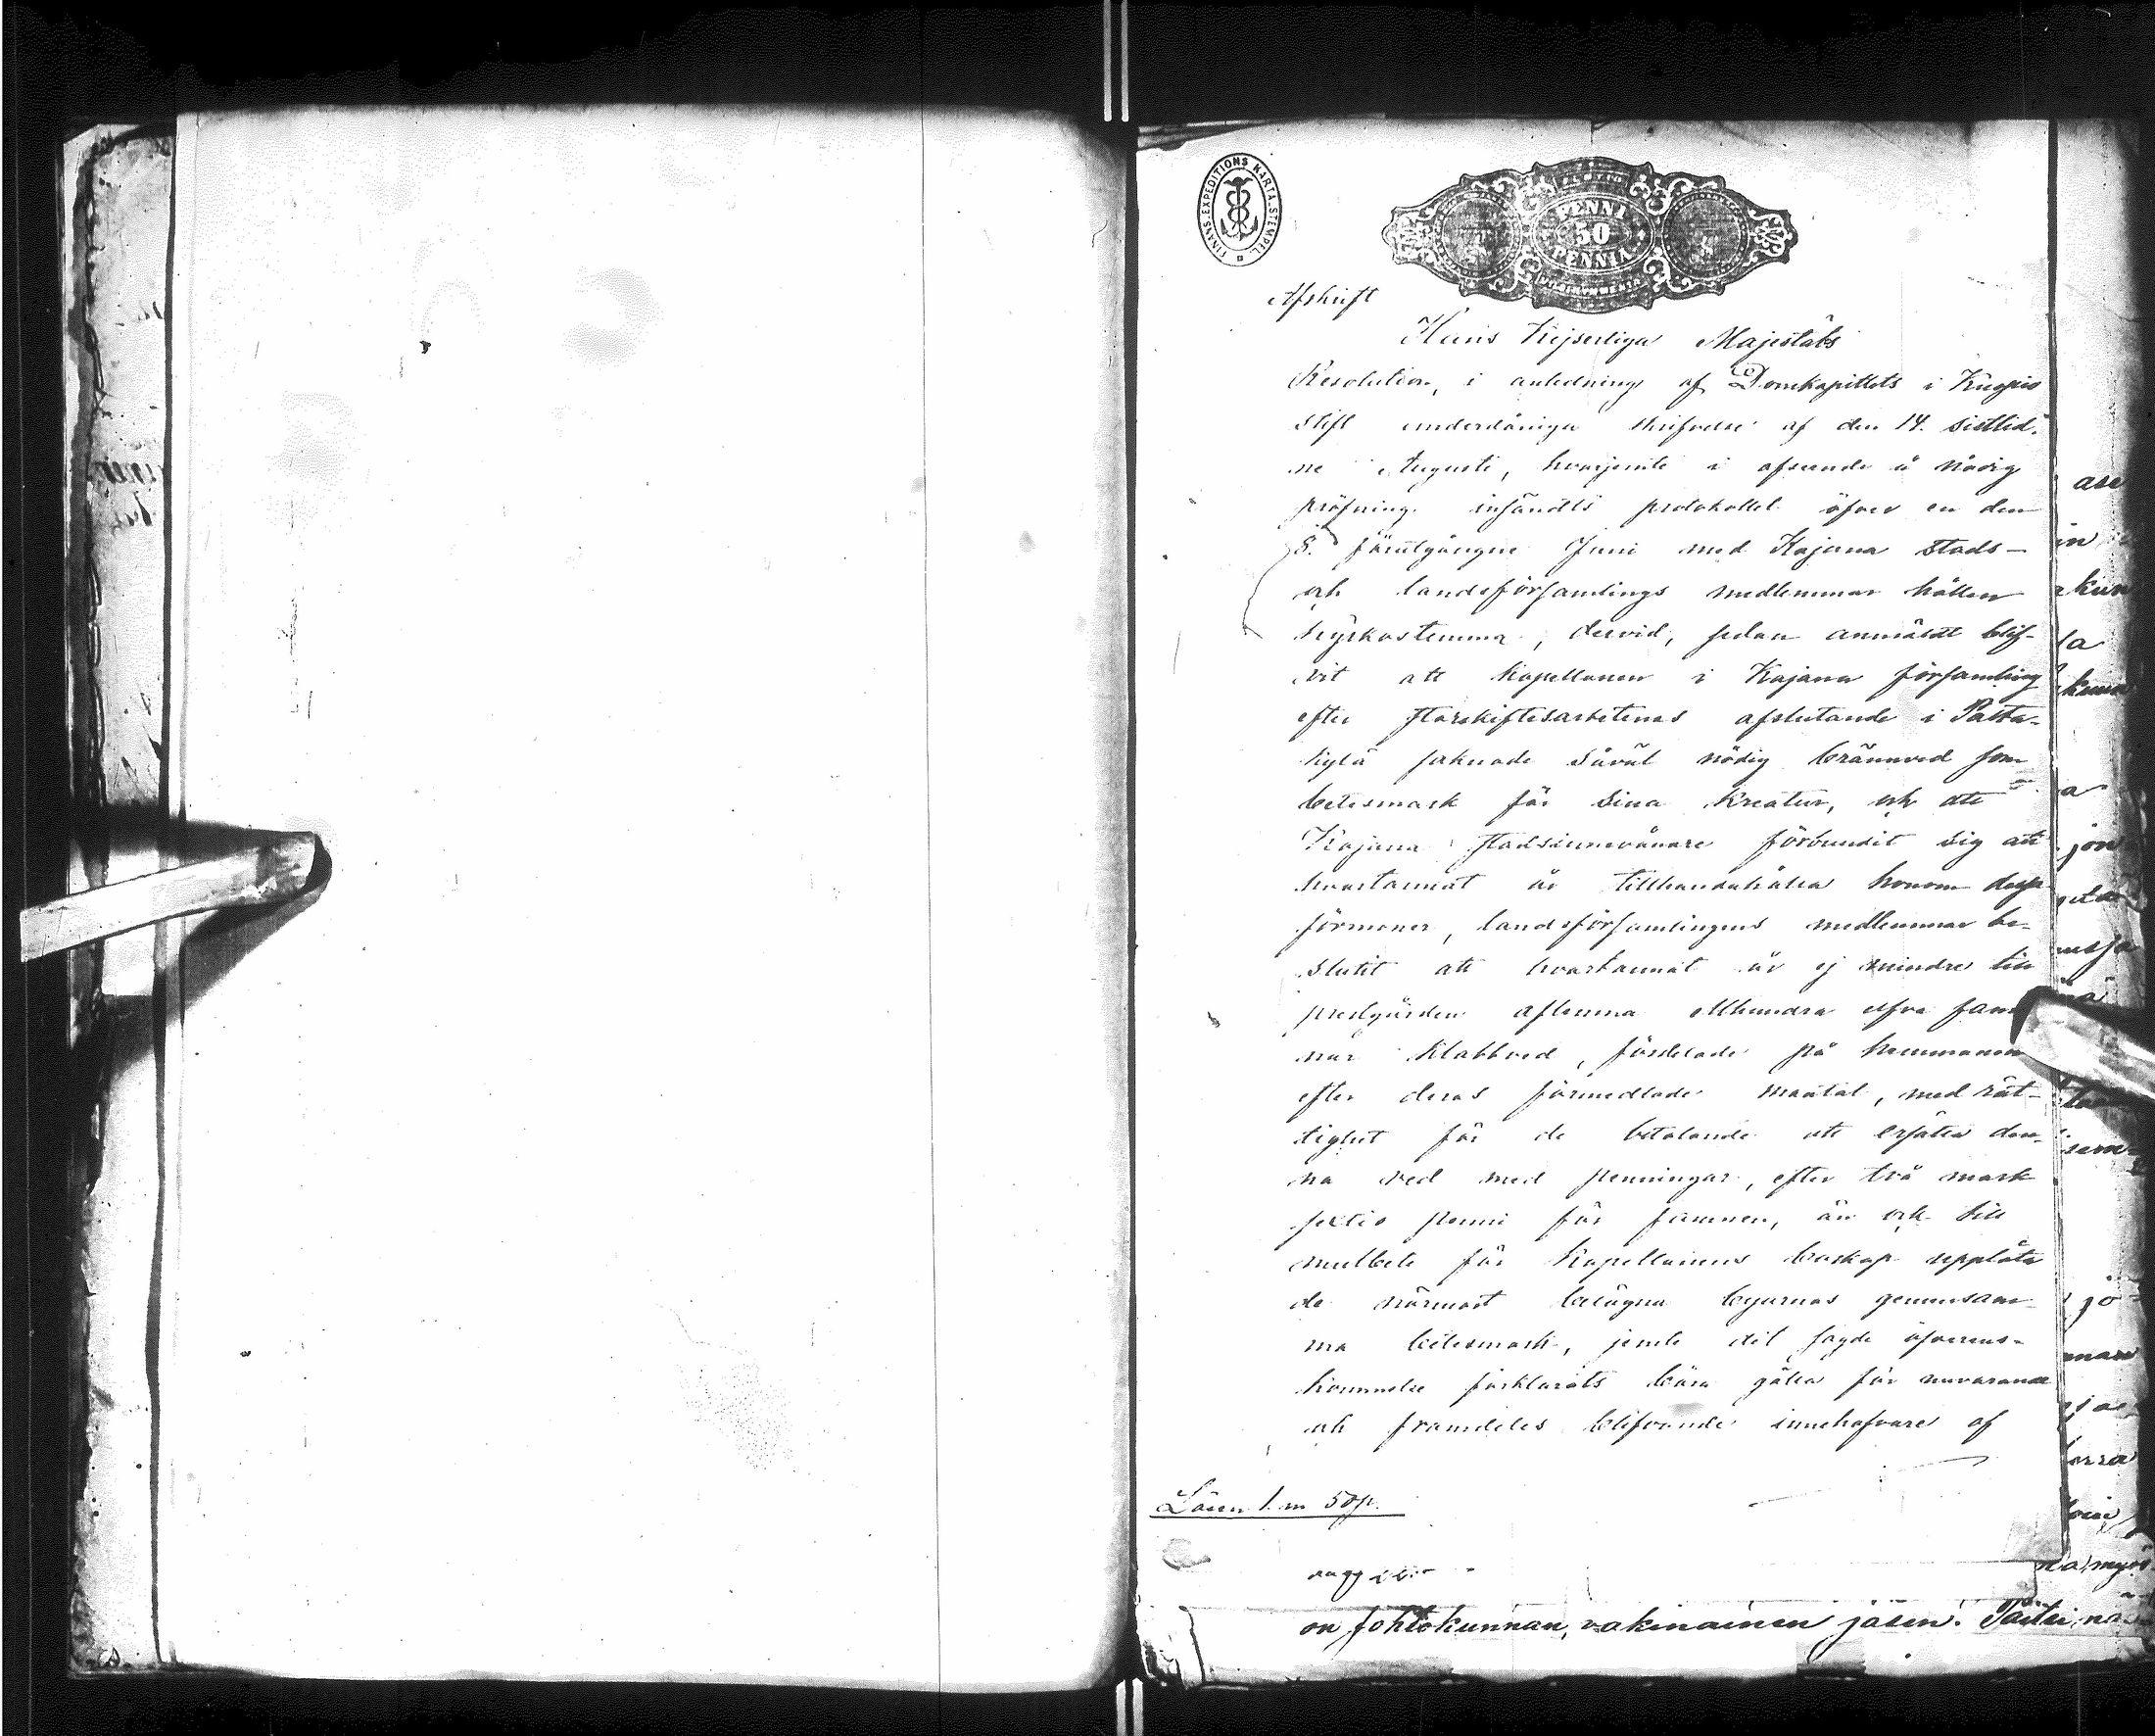 FINANS.EXPEDITIONS KARTA.STEMPEL.
PENNI
50
PENNIÄ
Afskrift
Hans Kejserliga Majestäts
Resolution, i anledning af Domkapitlets i Kuopio
stift underdåniga skrifvelse af den 14. sistlid-
ne Augusti, hvarjemte i afseende å nådig
pröfning insändts protokollet öfver en den
8. förutgångne Juni med Kajana stads-
och landsförsamlings medlemmar hållen
kyrkostemma, dervid, sedan anmäldt blif-
vit att kapellanen i Kajana församling
efter storskiftesarbetenas afslutande i Palta-
kylä saknade såväl nödig brännved som
betesmark för sina kreatur, och att
Kajana stadsinnevånare förbundit sig att
hvartannat år tillhandahålla honom dessa
förmoner, landsförsamlingens medlemmar be-
slutit att hvartannat år ej mindre till
prestgården aflemna etthundra elfva fam-
nar klabbved, fördelade på hemmanen
efter deras förmedlade mantal, med rät-
tighet för de betalande att ersätta den-
na ved med penningar, efter två mark
sextio penni för famnen, än och till
mulbete för Kapellanens boskap upplåta
de närmast belägna byarnas gemensam-
ma betesmark, jemte det sagde öfverens-
kommelse förklarats böra gälla för nuvarande
och framdeles blifvande innehafvare af
Lösen 1 m 50 p.
on johtokunnan, vakinainen jäsen.